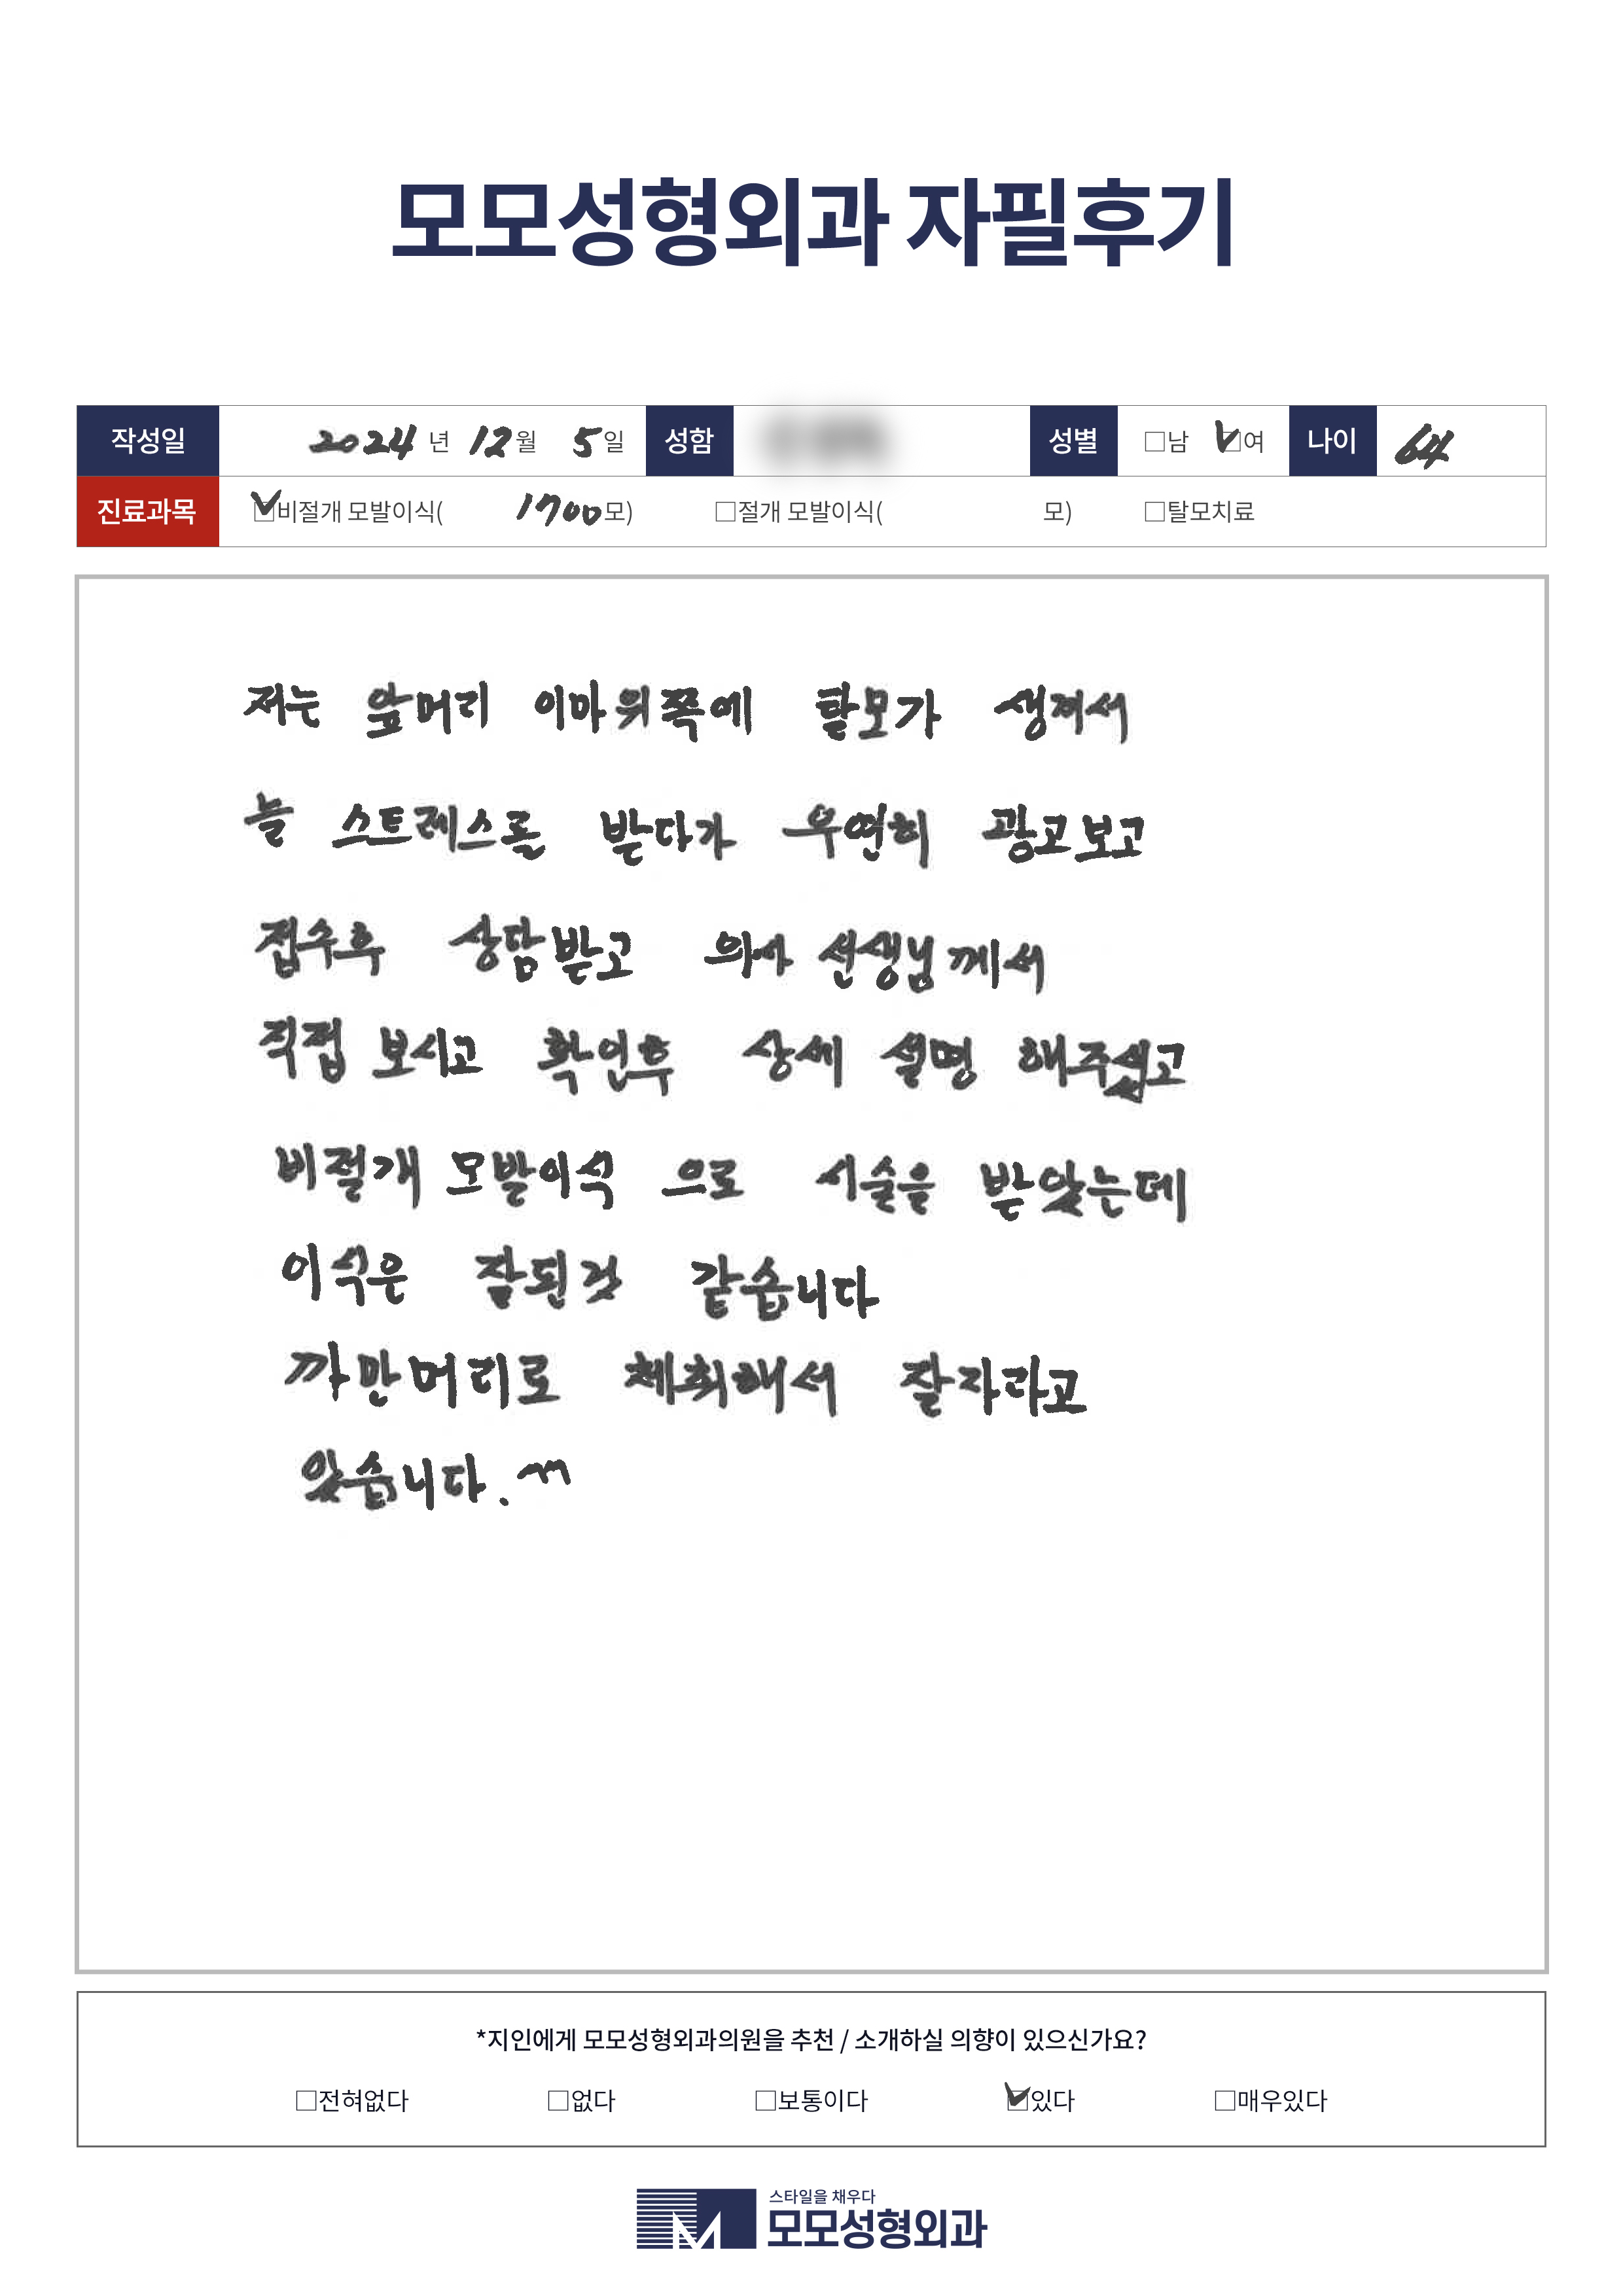 모모성형외과 자필후기
작성일 2024 년 12 월 5 일 성함 성별 □남 ☑여 나이 64
진료과목 ☑비절개 모발이식( 1700 모) □절개 모발이식( 모) □탈모치료
저는 앞머리 이마위쪽에 탈모가 생겨서
늘 스트레스를 받다가 우연히 광고보고
접수후 상담받고 의사 선생님께서
직접 보시고 확인후 상세 설명 해주셨고
비절개 모발이식 으로 시술을 받았는데
이식은 잘된것 같습니다
까만머리로 채취해서 잘자라고
있습니다. ^^
*지인에게 모모성형외과의원을 추천 / 소개하실 의향이 있으신가요?
□전혀없다 □없다 □보통이다 ☑있다 □매우있다
스타일을 채우다
모모성형외과